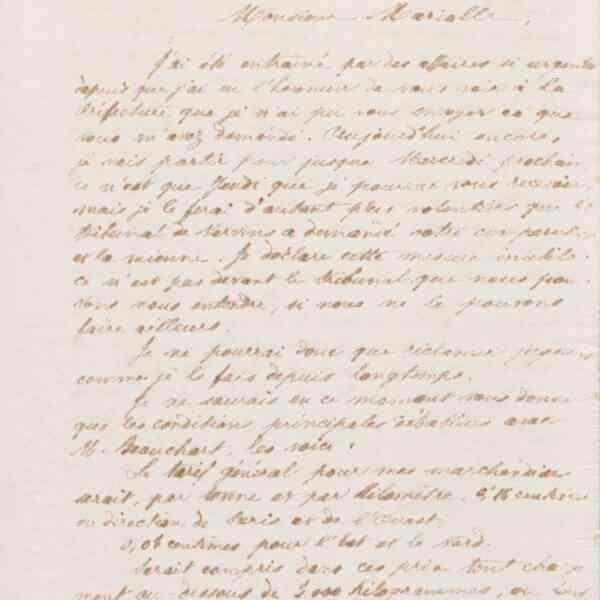 Monsieur Marielle,
J'ai été entraîné par des affaires si urgentes
depuis que j'ai eu l'honneur de vous voir à la
Préfecture que je n'ai pu vous envoyer ce que
vous m'avez demandé. Aujourd'hui encore,
je vais partir pour jusque Mercredi prochain
ce n'est que Jeudi que je pourrai vous recevoir,
mais je le ferai d'autant plus volontiers que le
tribunal de Vervins a demandé votre comparution
et la mienne. Je déclare cette mesure inutile.
ce n'est pas devant le tribunal que nous pou-
vons nous entendre, si nous ne le pouvons
faire ailleurs.
Je ne pourrai donc que réclamer
comme je le fais depuis longtemps.
Je ne saurais en ce moment vous donner
que les conditions principales débattues avec
M. Beauchart, les voici:
Le tarif général pour mes marchandises
serait, par tonne et par kilomètre, centimes
en direction de Paris et de l'Ouest.
0,08 centimes pour l'Est et le Nord.
Serait compris dans ces prix tout
ment au-dessous de kilogrammes, ou